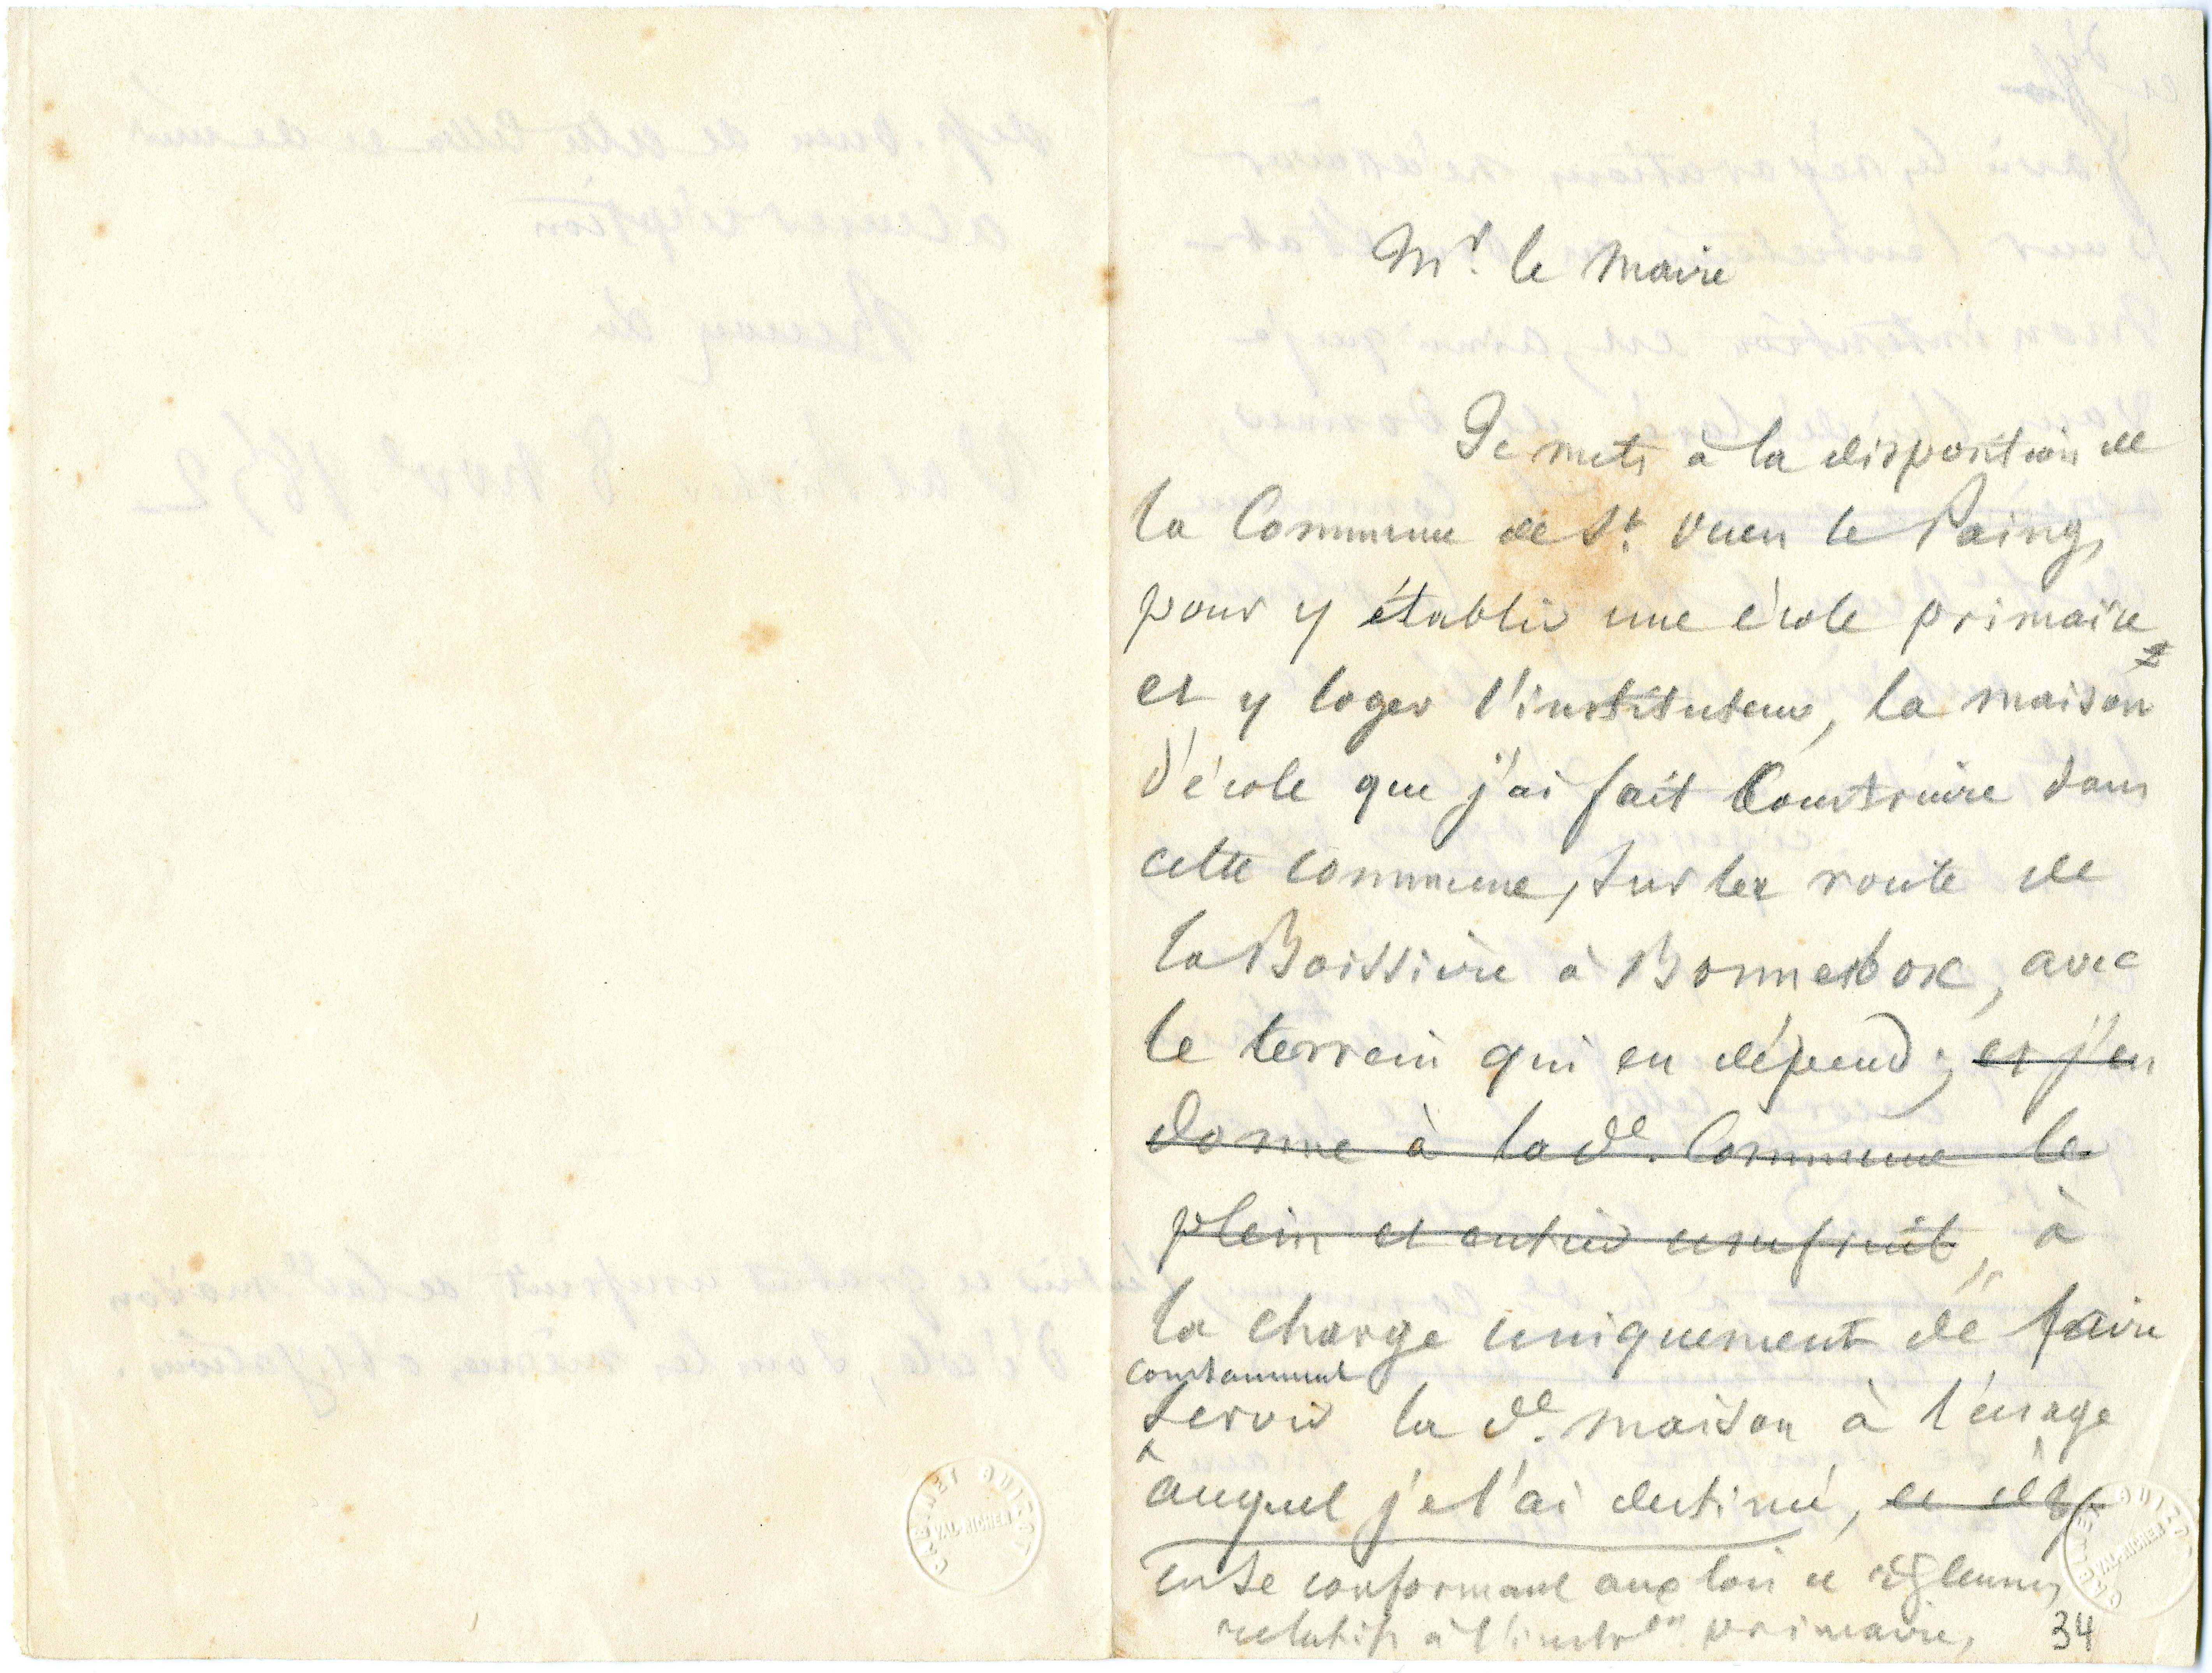 Mr. le Maire
Je mets à la disposition de
la Commune de St. Ouen le Paing,
pour y établir une école primaire
et y loger l'instituteur, la maison
d'école que j'ai fait Construire dans
cette commune, sur la route de
la Boissière à Bonnebox, avec
le terrein qui en dépend; et j'en
donne à la de. Commune le
plein et entier usufruit, à
la charge uniquement de faire
constamment
servir la de. maison à l'usage
auquel je l'ai destiné, et de
en se conformant aux lois et réglemens
relatifs à l'instron. primaire,
34
CABINET GUIZOT
VAL-RICHER
CABINET GUIZOT
VAL-RICHER